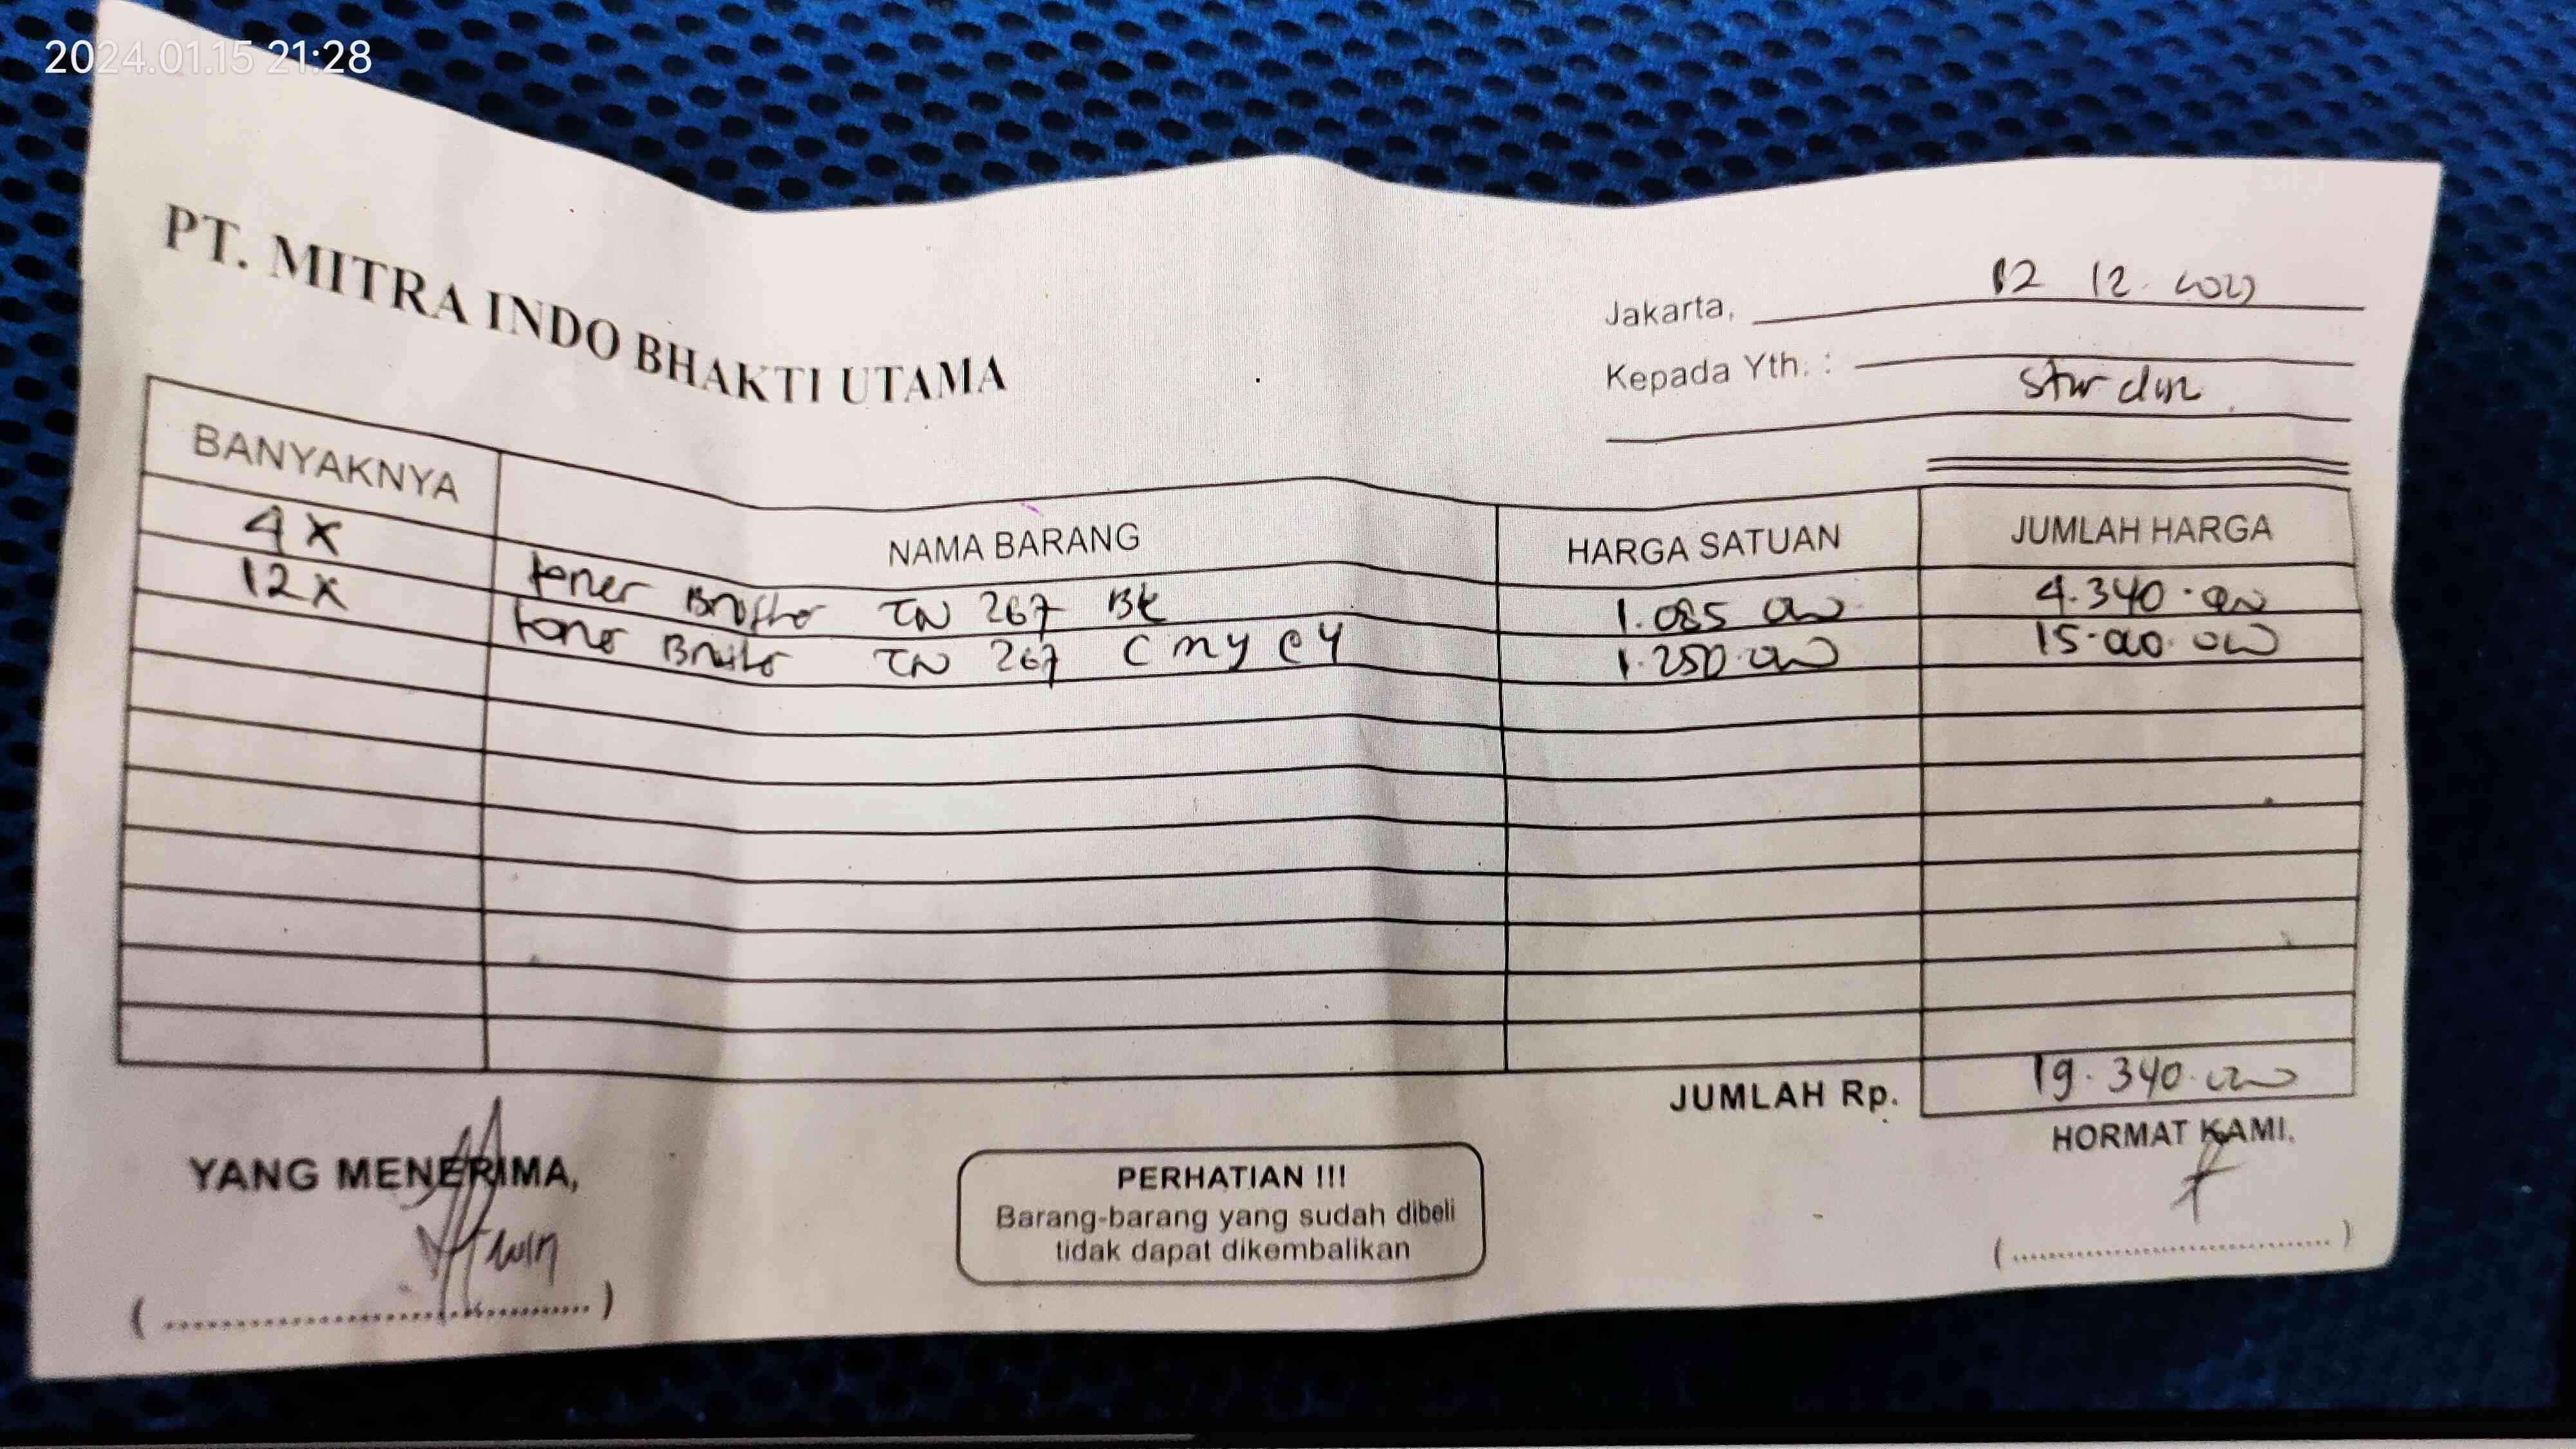 2024.01.15 21:28
PT. MITRA INDO BHAKTI UTAMA
Jakarta, 12 12. 2023
Kepada Yth. :
BANYAKNYA NAMA BARANG HARGA SATUAN JUMLAH HARGA
4x toner Brother TN 267 BK 1.085 000 4.340.000
12x toner Brother TN 267 C m y @ 4 1.250.000 15.000.000
JUMLAH Rp. 19.340.000
YANG MENERIMA,
HORMAT KAMI,
PERHATIAN !!!
Barang-barang yang sudah dibeli
tidak dapat dikembalikan
(..............................)
(..............................)